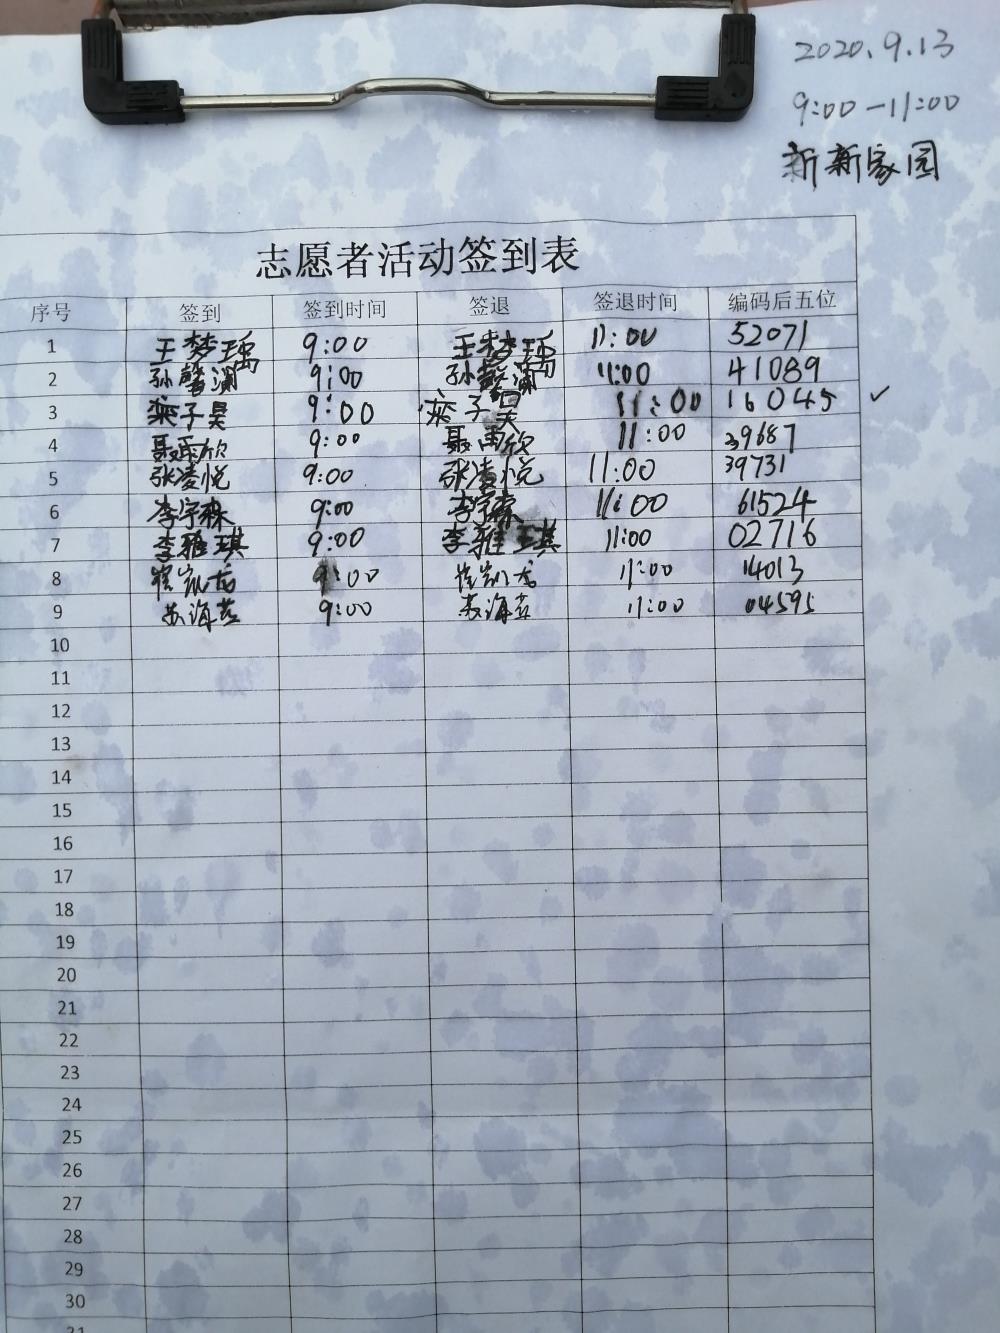 2020.9.13
9:00-11:00
新新家园
志愿者活动签到表
序号 签到 签到时间 签退 签退时间 编码后五位
1 王梦瑀 9:00 王梦瑀 11:00 52071
2 孙馨澜 9:00 孙馨澜 11:00 41089
3 栾子昊 9:00 栾子昊 11:00 16045 ✓
4 聂雨欣 9:00 聂雨欣 11:00 39687
5 张凌悦 9:00 张凌悦 11:00 39731
6 李宇森 9:00 李宇森 11:00 61524
7 李雅琪 9:00 李雅琪 11:00 02716
8 崔凯龙 9:00 崔凯龙 11:00 14013
9 苏海 9:00 苏海 11:00 04595
10
11
12
13
14
15
16
17
18
19
20
21
22
23
24
25
26
27
28
29
30
31